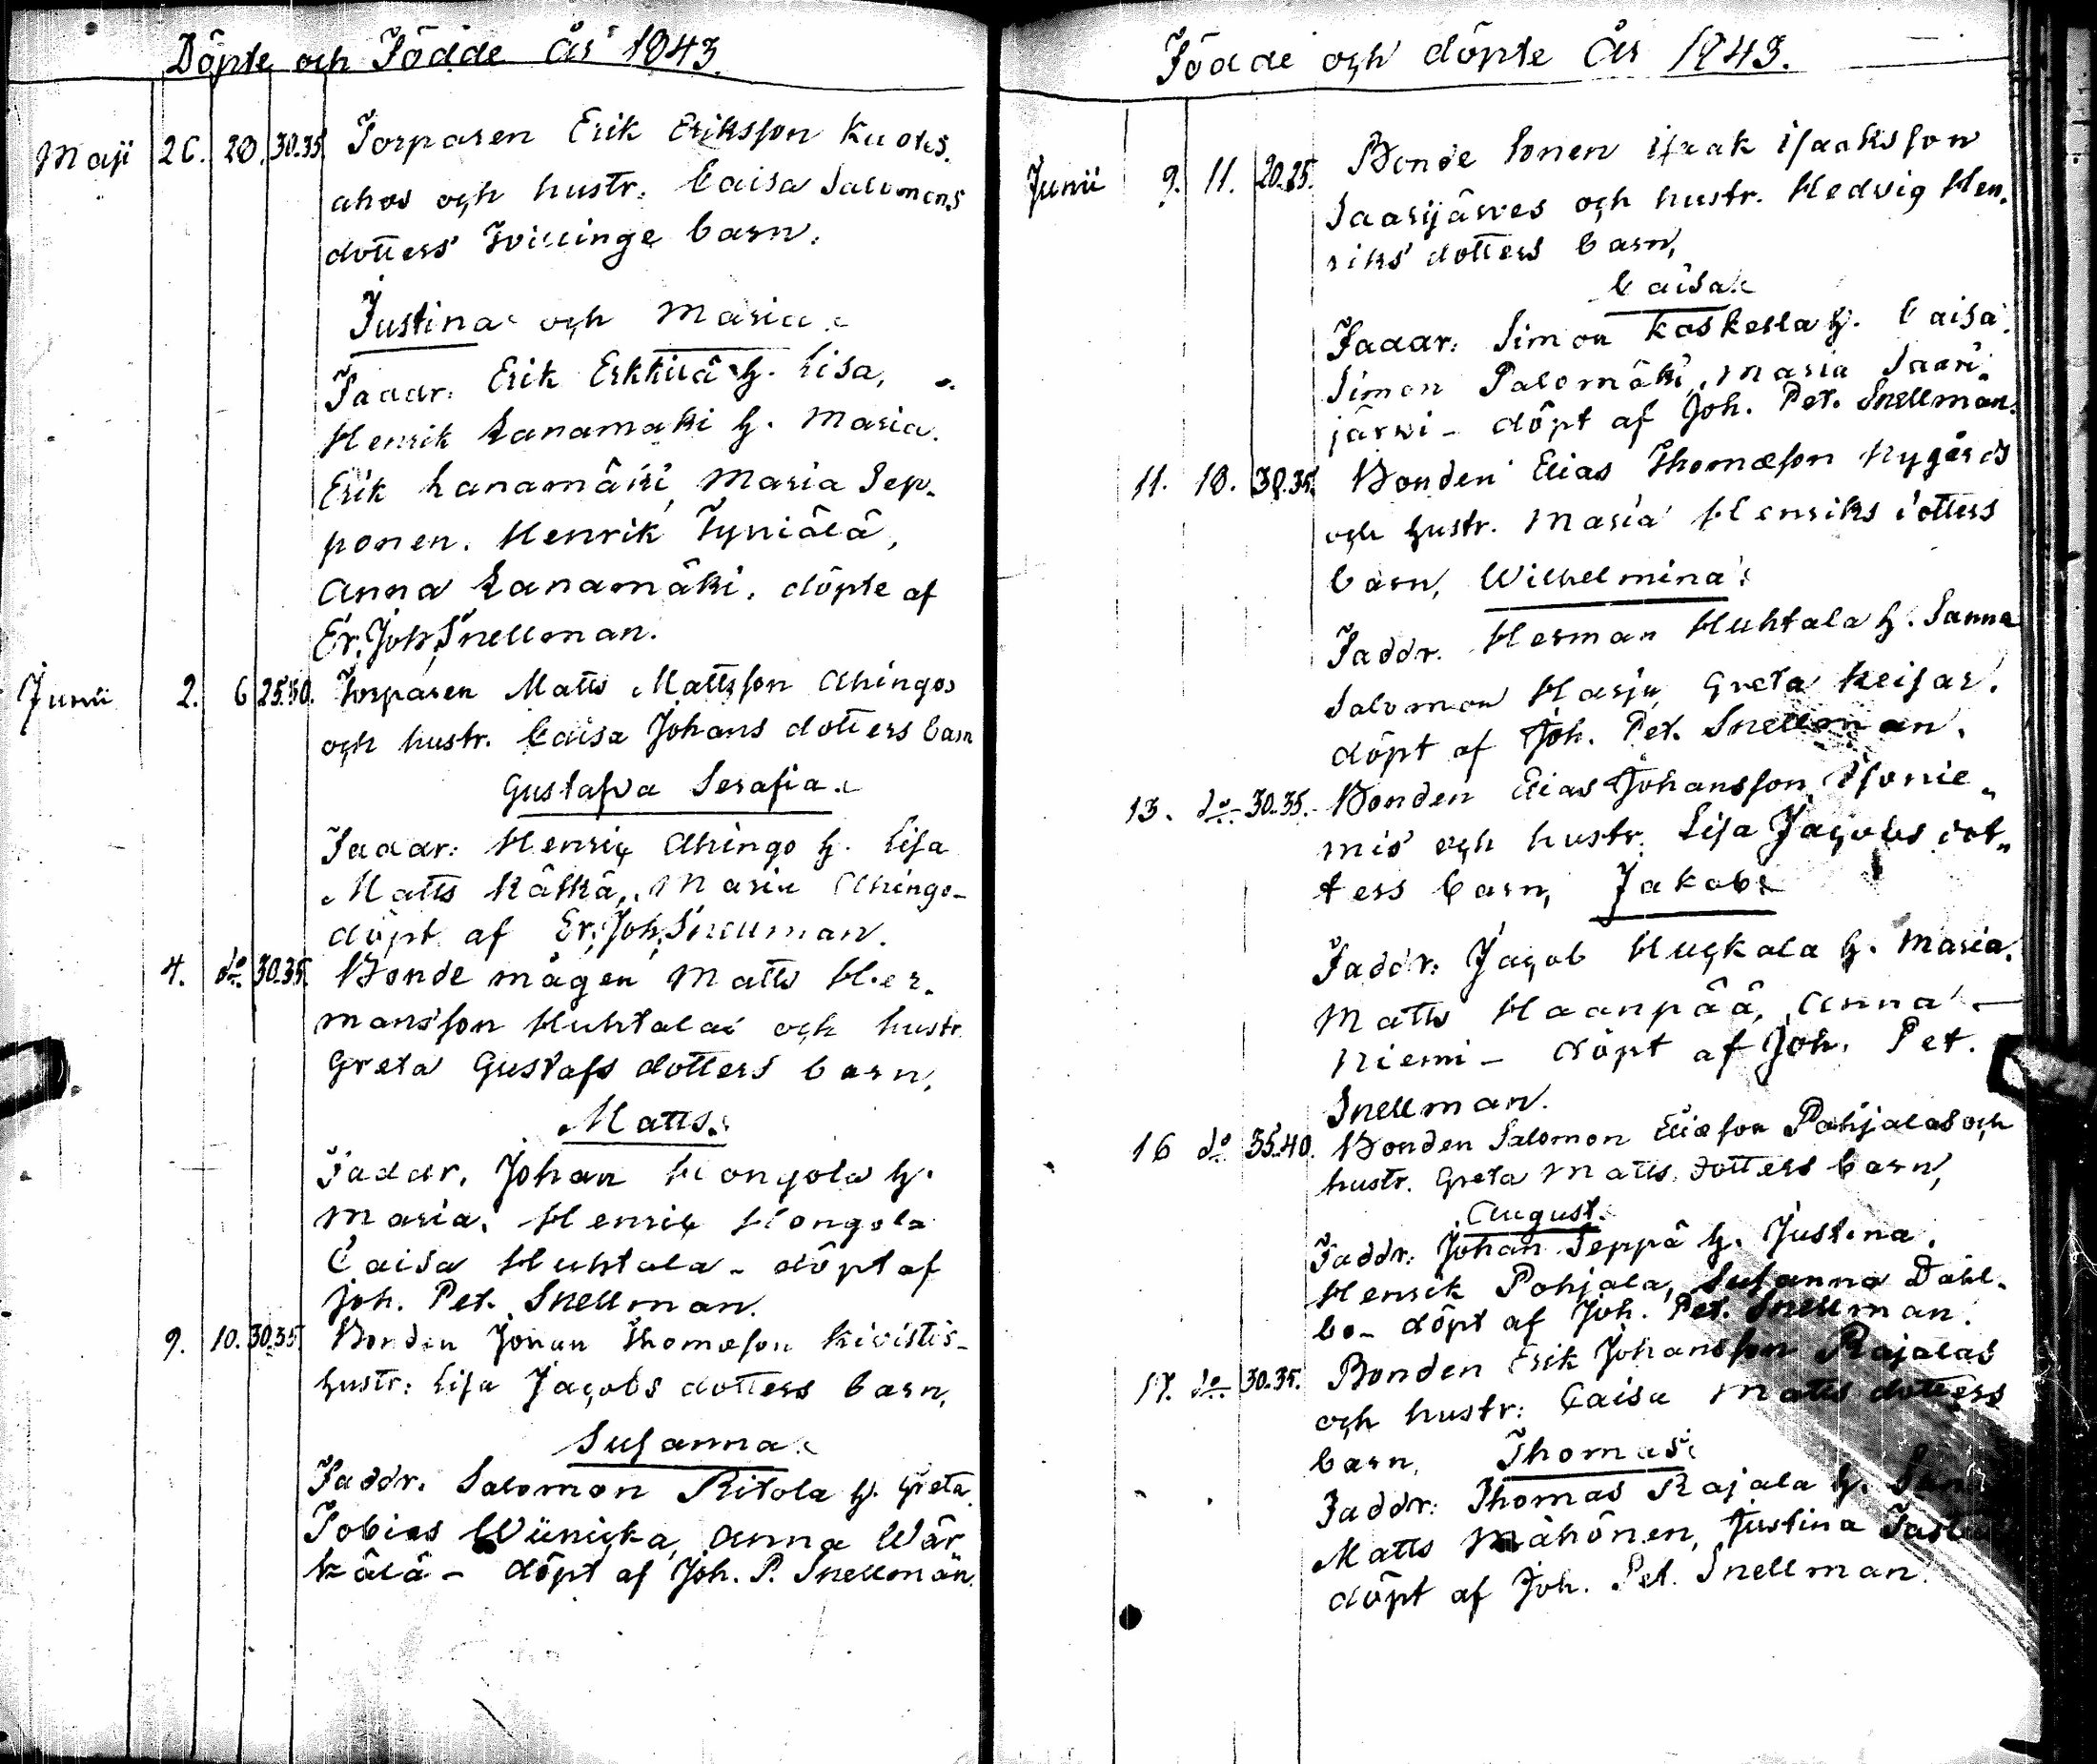 Döpte och Födde År 1843.
Maji 26. 28. 30.35. Torparen Erik Eriksson Kuoks-
ahos och hustr. Caisa Salomons
dotters Tvillinge barn.
Justina och Maria.
Faddr. Erik Erkkilä h. Lisa,
Henrik Lanamäki h. Maria.
Erik Lanamäki, Maria Sep-
ponen. Henrik Tyniälä,
Anna Lanamäki. döpte af
Er. Joh. Snellman.
Junii 2. 6 25.50. Torparen Matts Mattsson Ahingos
och hustr. Caisa Johans dotters barn
Gustafva Serafia.
Faddr: Henric Ahingo h. Lisa
Matts Kälkä, Maria Ahingo-
döpt af Er. Joh. Snellman.
4. do 30.35. Bonde mågen Matts Her-
mansson Huhtalas och hustr.
Greta Gustafs dotters barn,
Matts.
Faddr. Johan Hongola h.
Maria. Henric Hongola
Caisa Huhtala - döpt af
Joh. Pet. Snellman.
9. 10. 30.35. Bonden Johan Thomæson Kivistis-
hustr: Lisa Jacobs dotters barn,
Susanna.
Faddr. Salomon Ritola h. Greta.
Tobias Wiinicka, Anna Wär
kälä - döpt af Joh. P. Snellman.
Födde och döpte År 1843.
Junii 9. 11. 20.25. Bonde Sonen Isaak Isaaksson
Saarijärves och hustr. Hedvig Hen-
riks dotters barn,
Caisa.
Faddr: Simon Koskesla h. Caisa.
Simon Palomäki, Maria Saari-
järvi - döpt af Joh. Pet. Snellman.
11. 18. 30.35. Bonden Elias Thomæson Nygårds
och hustr. Maria Henriks dotters
barn, Wilhelmina.
Faddr. Herman Huhtala h. Sanna
Salomon Harju, Greta Keisar.
döpt af Joh. Pet. Snellman.
13. do 30.35. Bonden Elias Johansson Isonie-
mis och hustr. Lisa Jacobs dot-
ters barn, Jakob.
Faddr: Jacob Huckala h. Maria.
Matts Haanpää, Anna -
Niemi - döpt af Joh. Pet.
Snellman.
16 do 35.40. Bonden Salomon Eliæson Pohjalas och
hustr. Greta Matts dotters barn,
August.
Faddr: Johan Seppä h. Justina.
Henrik Pohjala, Susanna Dahl-
bo - döpt af Joh. Pet. Snellman.
17. do 30.35. Bonden Erik Johansson Rajalas
och hustr: Caisa Matts dotters
barn, Thomas.
Faddr: Thomas Rajala h.
Matts Mähönen, Justina
döpt af Joh. Pet. Snellman.